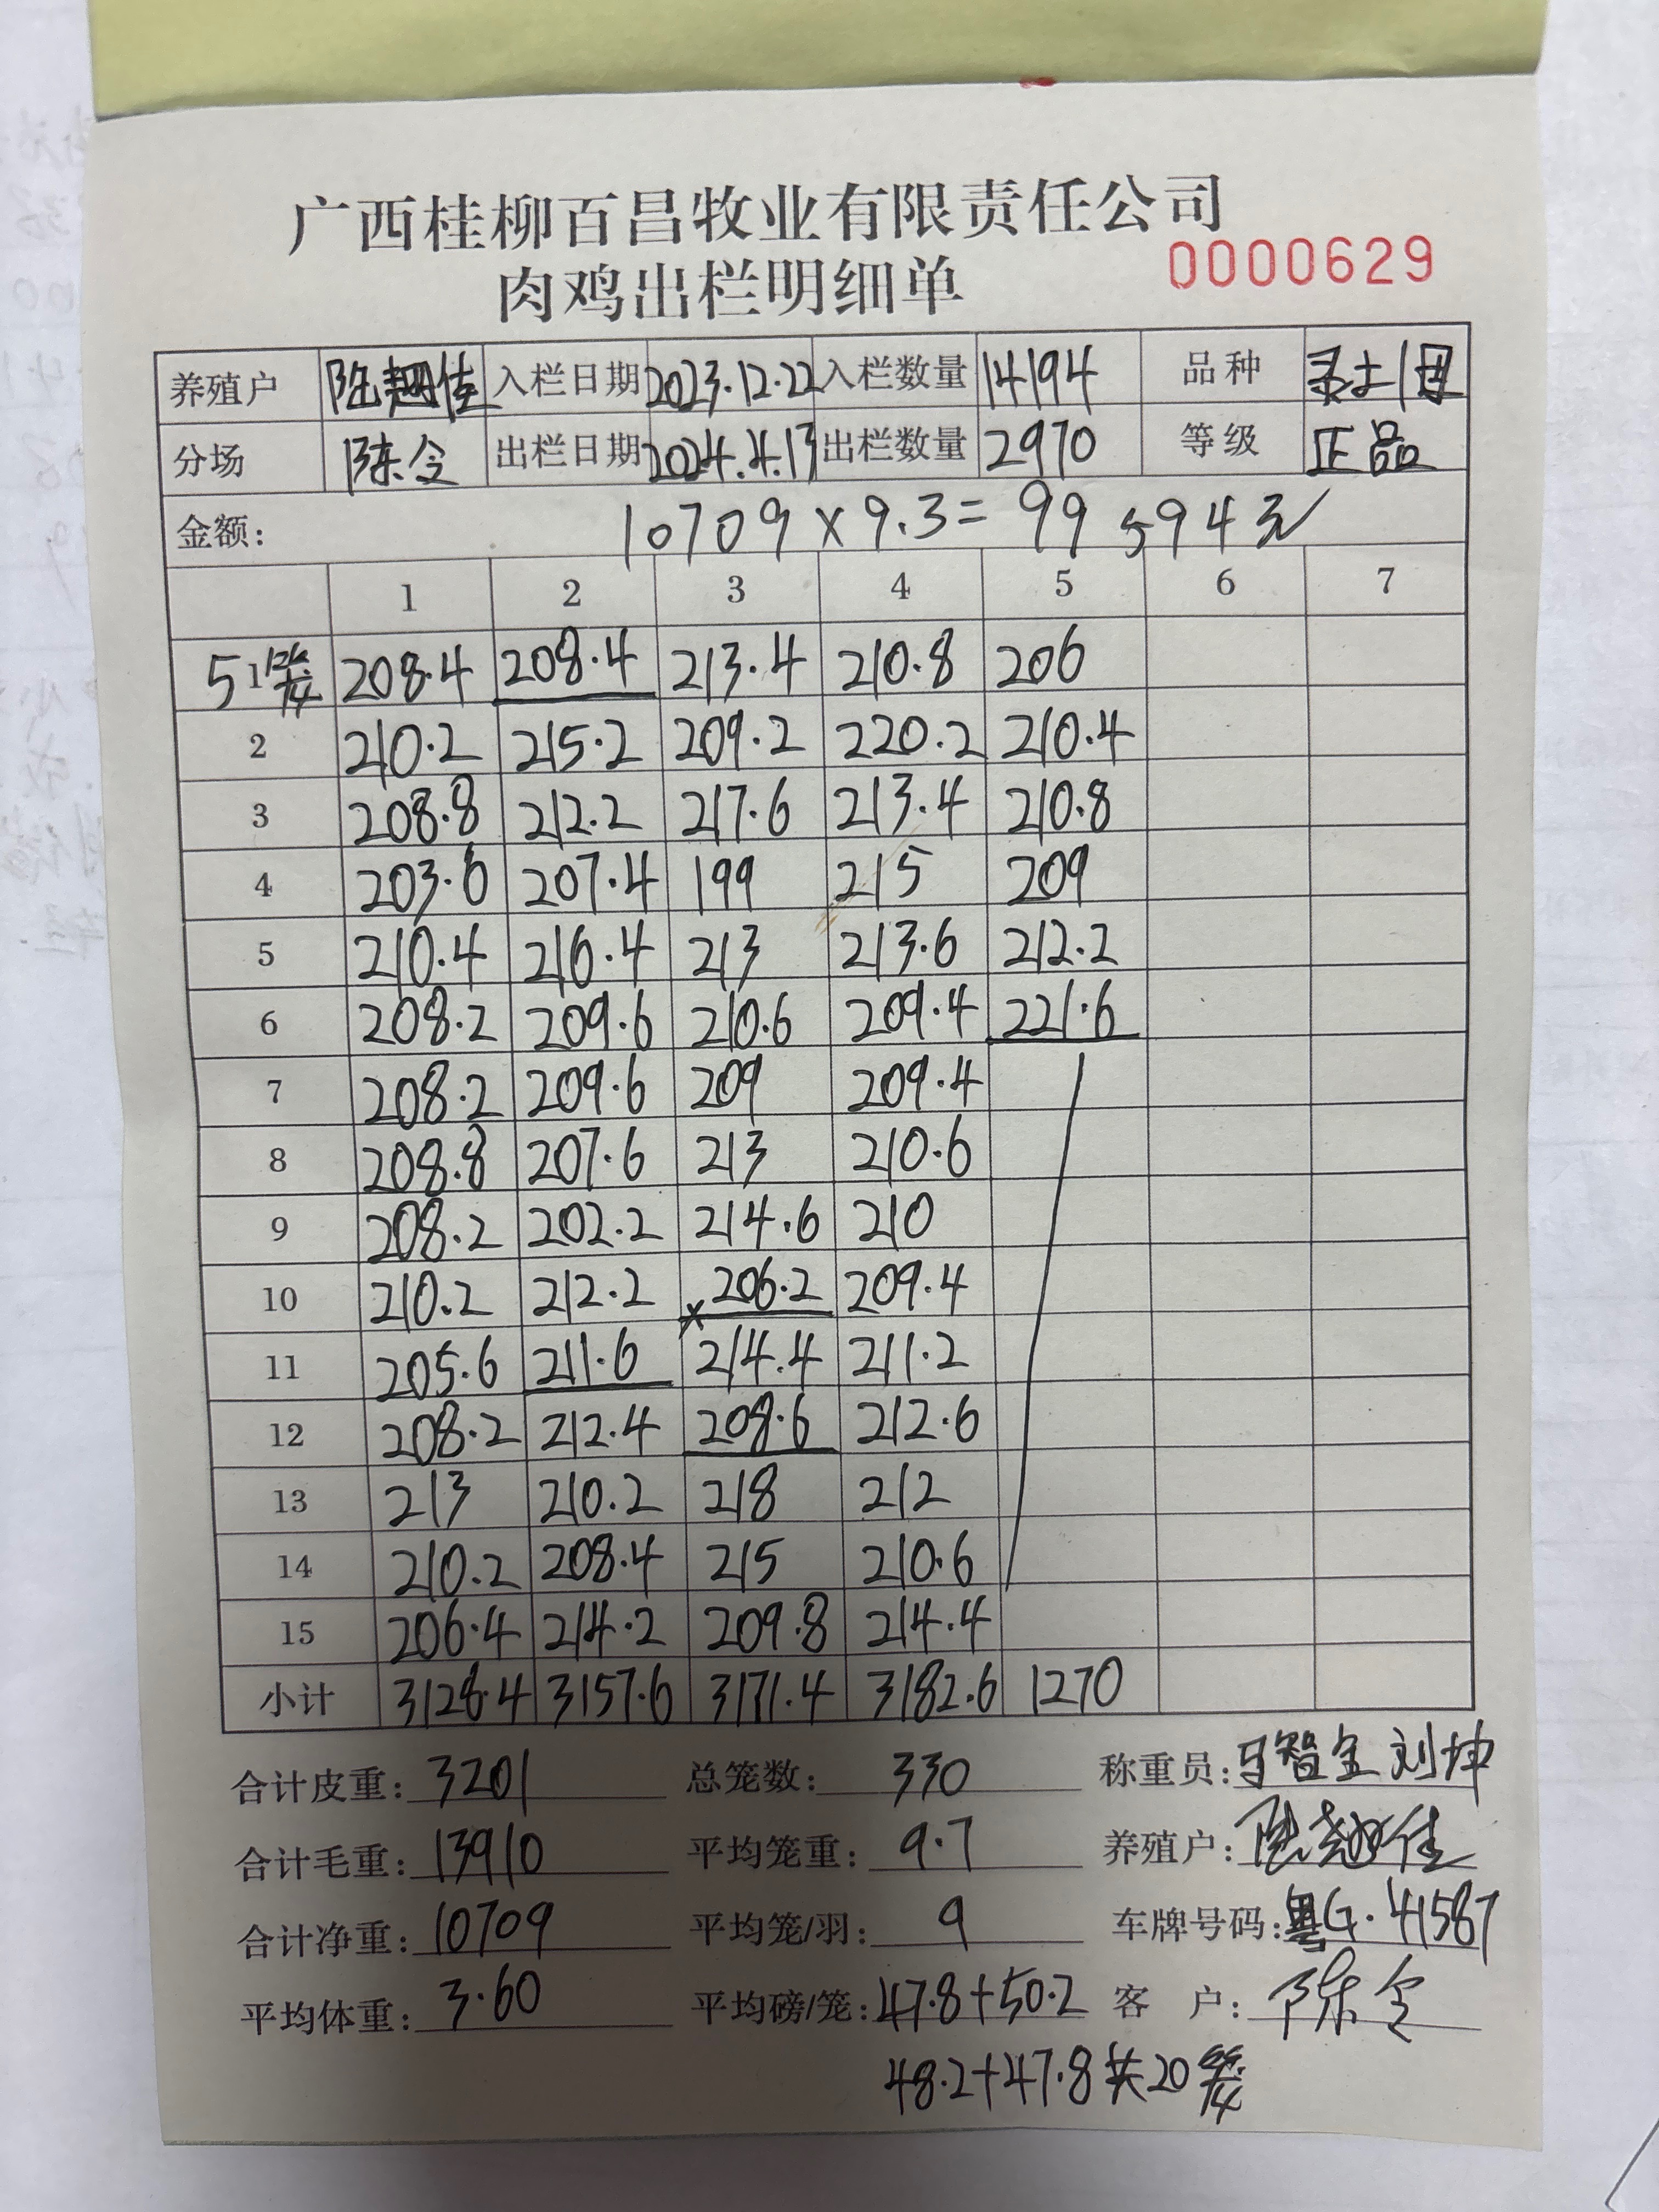 广西桂柳百昌牧业有限责任公司
肉鸡出栏明细单 0000629
养殖户 陆越佳 入栏日期 2023.12.22 入栏数量 14194 品种 灵土1母
分场 陈令 出栏日期 2024.4.13 出栏数量 2970 等级 正品
金额: 10709×9.3=99594元
1 2 3 4 5 6 7
5 1 208.4 208.4 213.4 210.8 206
2 210.2 215.2 209.2 220.2 210.4
3 208.8 212.2 217.6 213.4 210.8
4 203.6 207.4 199 215 209
5 210.4 216.4 213 213.6 212.2
6 208.2 209.6 210.6 209.4 221.6
7 208.2 209.6 209 209.4
8 208.8 207.6 213 210.6
9 208.2 202.2 214.6 210
10 210.2 212.2 ×206.2 209.4
11 205.6 211.6 214.4 211.2
12 208.2 212.4 208.6 212.6
13 213 210.2 218 212
14 210.2 208.4 215 210.6
15 206.4 214.2 209.8 214.4
小计 3128.4 3157.6 3171.4 3182.6 1270
合计皮重: 3201 总笼数: 330 称重员: 马智宝 刘坤
合计毛重: 13910 平均笼重: 9.7 养殖户: 陆越佳
合计净重: 10709 平均笼/羽: 9 车牌号码: 粤G·41587
平均体重: 3.60 平均磅/笼: 47.8+50.2 客 户: 陈令
48.2+47.8共20